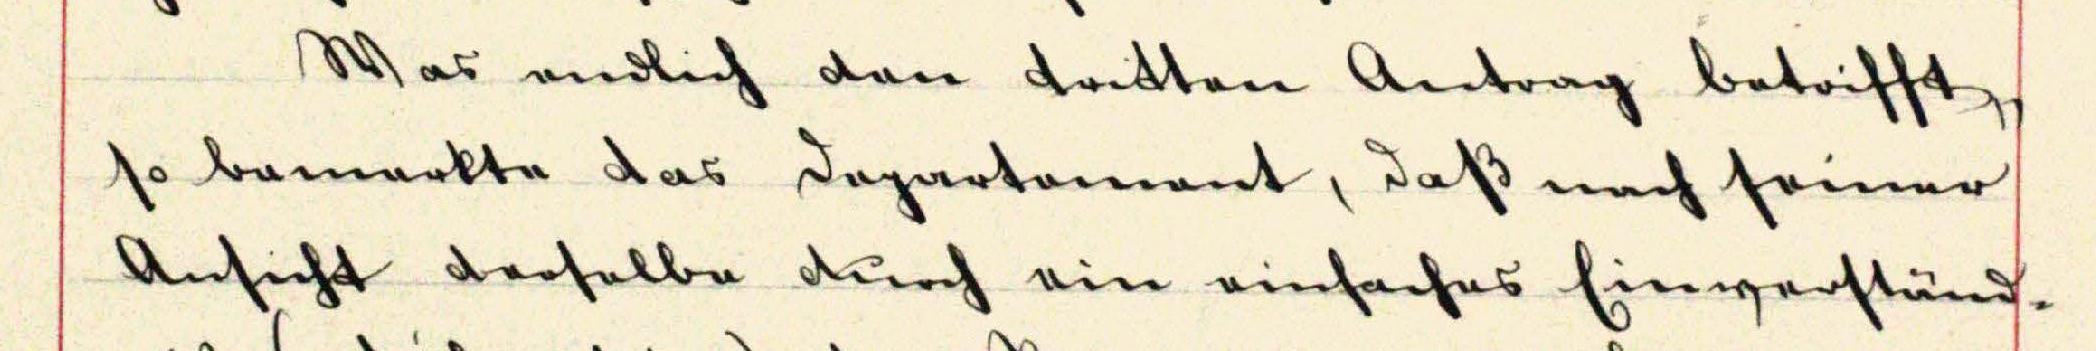 Was endlich den dritten Antrag betrifft,
so bemerkte das Departement, daß nach seiner
Ansicht derselbe durch ein einfaches Einverständ-